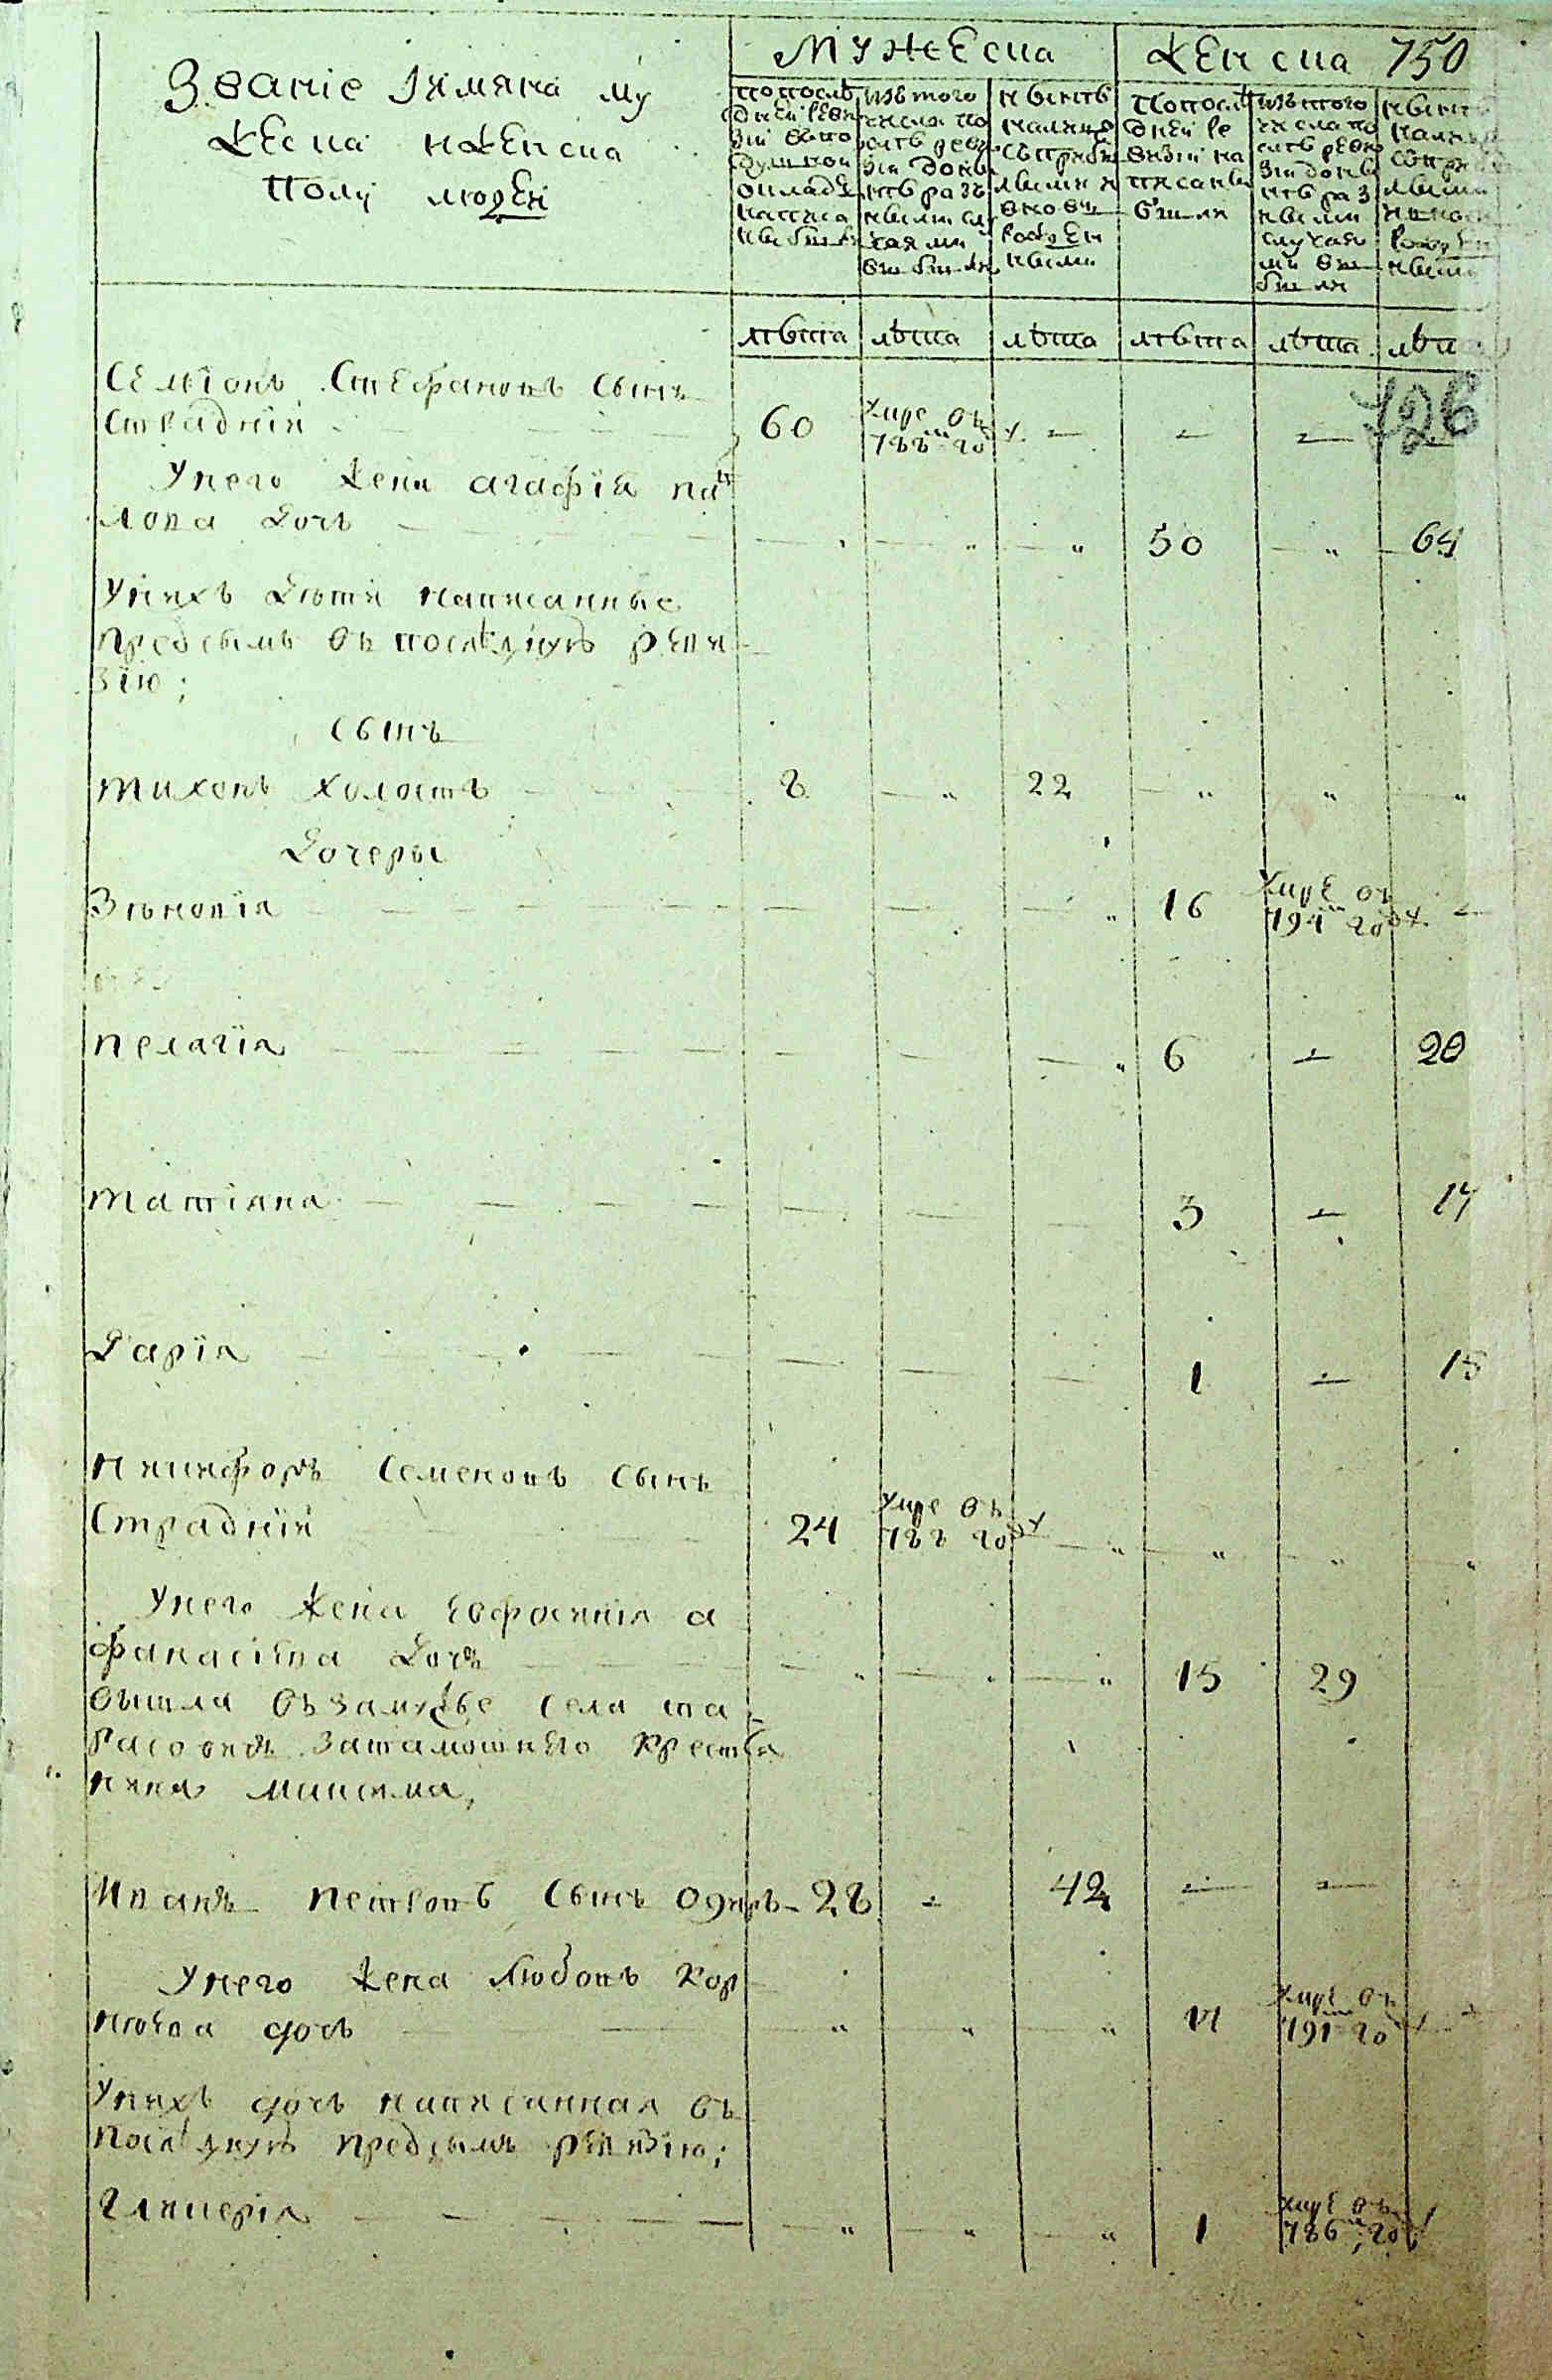 Званіе їимяна му
жеска иженска
Полу людей
Мужеска
Женска 750
Попослѣ
дней реви
зіи вьпо
душной
окладѣ
написа
ны были
изьтого
числа по
слѣ реви
зіи дон
нѣ разь
ными слу
чаями
выбыли
Нынѣ
налицо
сьприбы
лыми и
вновь
рожден
ными
Попослѣ
дней ре
визіи на
писаны
были
изьтого
числа по
слѣ реви
зіи дон
нѣ раз
ными
случая
ми вы
были
Нынѣ
лѣта лѣта лѣта лѣта лѣта
726
Семіонъ Стефановъ сынъ
Страдній 60 умре въ 788 го
Унего жена агафія па
лова дочь 50 64
Унихъ дѣти написанные
предсымъ въ послѣдную реви
зію;
сынъ
тихонъ холостъ 8 22
Дочеры
Зѣновія 16 умре въ 794 го
пелагія 6 20
татіяна 3 17
Дарія 1 15
никифоръ семеновъ сынъ
Страдній 24 умре въ 788 го
Унего жена Евфосинія а
фанасіева дочь 15 29
вышла въ замужъе села та
расовки затамошнего крестья
нина максима,
Иванъ петровъ сынъ 28 42
Унего жена любовь кор
ніева дочь умре въ 791 го
Унихъ дочь написанная въ
послѣдную предсымъ ревизію;
гликерія 1 умре въ 786 го